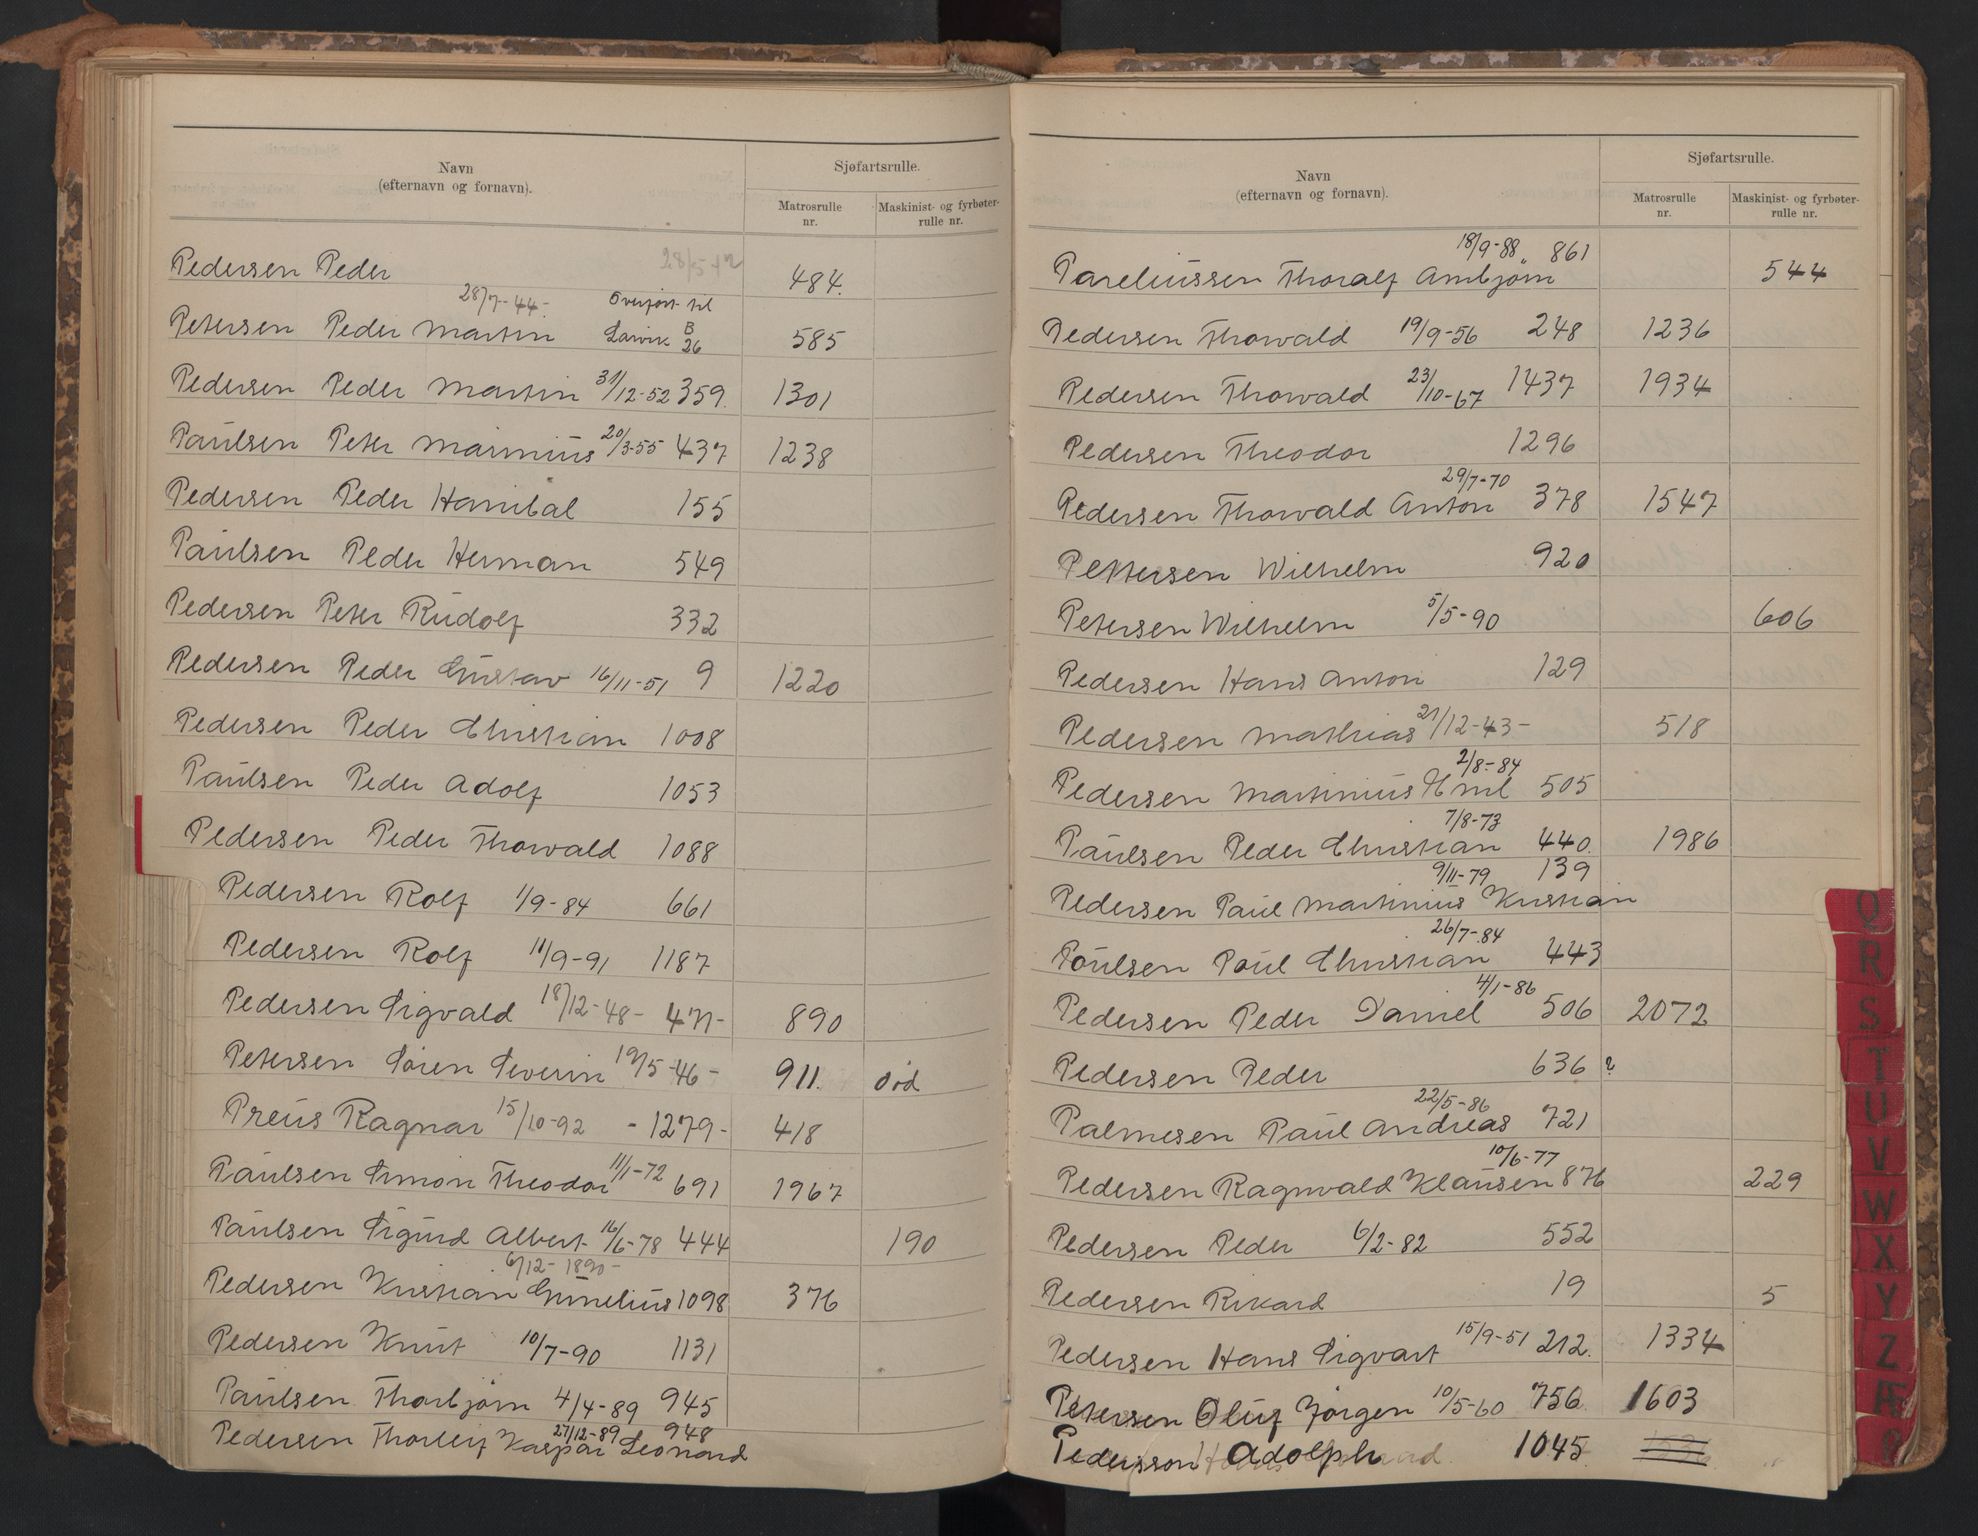 Navn
(efternavn og fornavn).
Sjøfartsrulle.
Matrosrulle nr.
Maskinist- og fyrbøter- rulle nr.
Pedersen Peder 28/5-42 484.
28/7-44- Overført til
Petersen Peder Martin Larvik B 26 585
Pedersen Peder Martin 31/12-52 359. 1301
Paulsen Peter Marinius 20/3-55 437 1238
Pedersen Peder Hanibal 155
Paulsen Peder Herman 549
Pedersen Peter Rudolf 332
Pedersen Peder Gustav 16/11-51 9 1220
Pedersen Peder Christian 1008
Paulsen Peder Adolf 1053
Pedersen Peder Thorvald 1088
Pedersen Rolf 1/9-84 661
Pedersen Rolf 11/9-91 1187
Pedersen Sigvald 18/12-48- 471- 890
Petersen Søren Severin 19/5-46- 911. død
Preus Ragnar 15/10-92 - 1279- 418
Paulsen Simon Theodor 11/1-72 691 1967
Paulsen Sigurd Albert 16/6-78 444 190
6/12-1890-
Pedersen Kristian Cornelius 1098 376
Pedersen Knut 10/7-90 1131
Paulsen Thorbjørn 4/4-89 945
27/12-89 948
Pedersen Thorleif Kaspar Leonard
Navn
(efternavn og fornavn).
Sjøfartsrulle.
Matrosrulle nr.
Maskinist- og fyrbøter- rulle nr.
18/9-88 861
Pareliussen Thoralf Arnbjørn 544
Pedersen Thorvald 19/9-56 248 1236
Pedersen Thorvald 23/10-67 1437 1934
Pedersen Theodor 1296
29/7-70
Pedersen Thorvald Anton 378 1547
Pettersen Wilhelm 920
Petersen Wilhelm 5/5-90 606
Pedersen Hans Anton 129
Pedersen Mathias 21/12-43- 518
2/8-84
Pedersen Martinius Emil 505
7/8-73
Paulsen Peder Christian 440. 1986
9/11-79 139
Pedersen Paul Martinius Kristian
26/7-84
Poulsen Poul Christian 443
4/1-86
Pedersen Peder Daniel 506 2072
Pedersen Peder 636 ?
22/5-86
Palmesen Paul Andreas 721
10/6-77
Pedersen Ragnvald Klausen 876 229
Pedersen Peder 6/2-82 552
Pedersen Rikard 19 5
Pedersen Hans Sigvart 15/9-51 212. 1334
Petersen Oluf Jørgen 10/5-60 756 1603
Pedersson Adolph 1045
Q
R
S
T
U
V
W
X
Y
Z
Æ
Ø